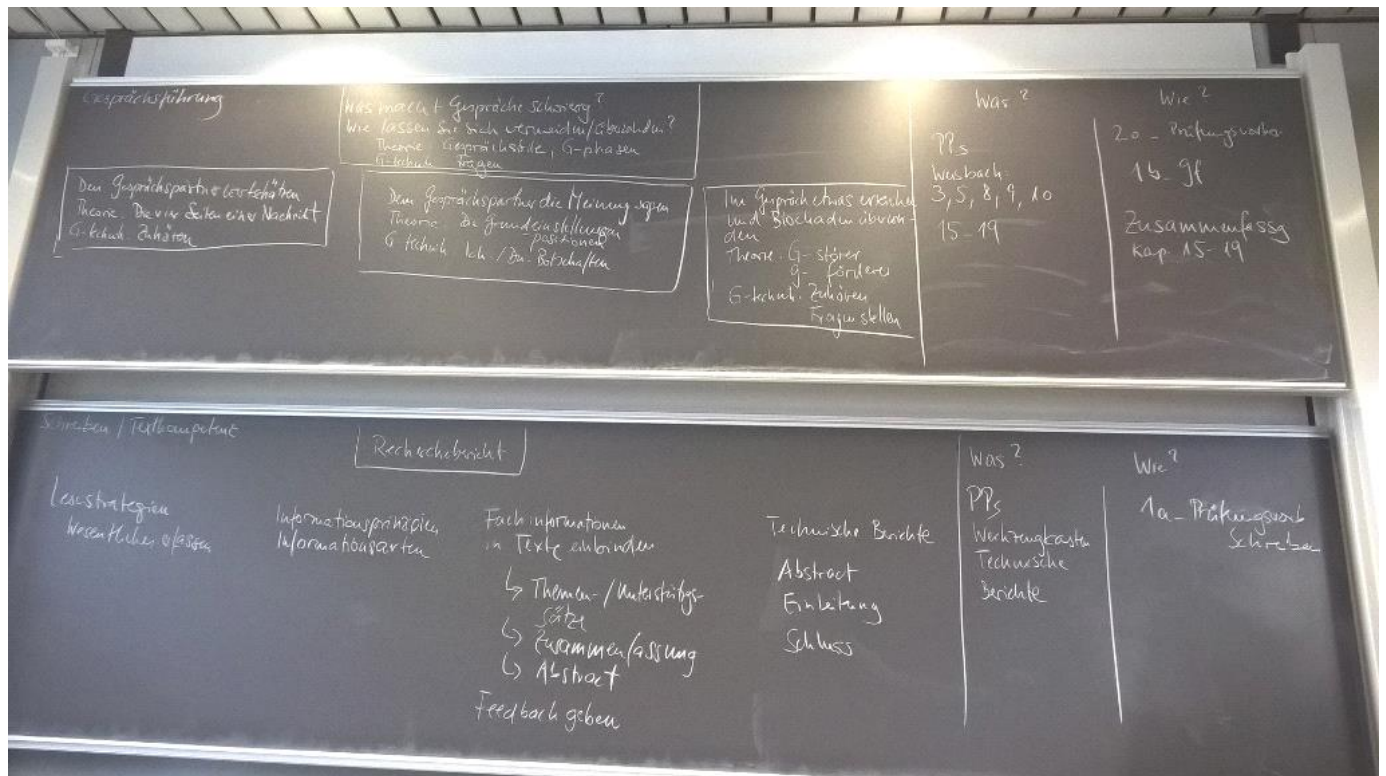 Gesprächsführung
Was macht Gespräche schwierig?
Wie lassen Sie sich vermeiden/überwinden?
Theorie: Gesprächsstile, G-phasen
G-technik: Fragen
Den Gesprächspartner verstehen
Theorie: Die vier Seiten einer Nachricht
G-technik: Zuhören
Dem Gesprächspartner die Meinung sagen
Theorie: Die Grundeinstellungen
positionen
G-technik Ich-/Du-Botschaften
Im Gespräch etwas erreichen
und Blockaden überwin-
den
Theorie: G-störer
G-förderer
G-technik: Zuhören
Fragen stellen
Was?
PPs
Weisbach:
3, 5, 8, 9, 10
15-19
Wie?
20_Prüfungsvorber
1b_gf
Zusammenfassg
Kap. 15-19
Schreiben / Textkompetenz
Recherchebericht
Lesestrategien
Wesentliches erfassen
Informationsprinzipien
Informationsarten
Fachinformationen
in Texte einbinden
↳ Themen-/Unterstützgs-
sätze
↳ Zusammenfassung
↳ Abstract
Feedback geben
Technische Berichte
Abstract
Einleitung
Schluss
Was?
PPs
Werkzeugkasten
Technische
Berichte
Wie?
1a_Prüfungsvorb
Schreiben